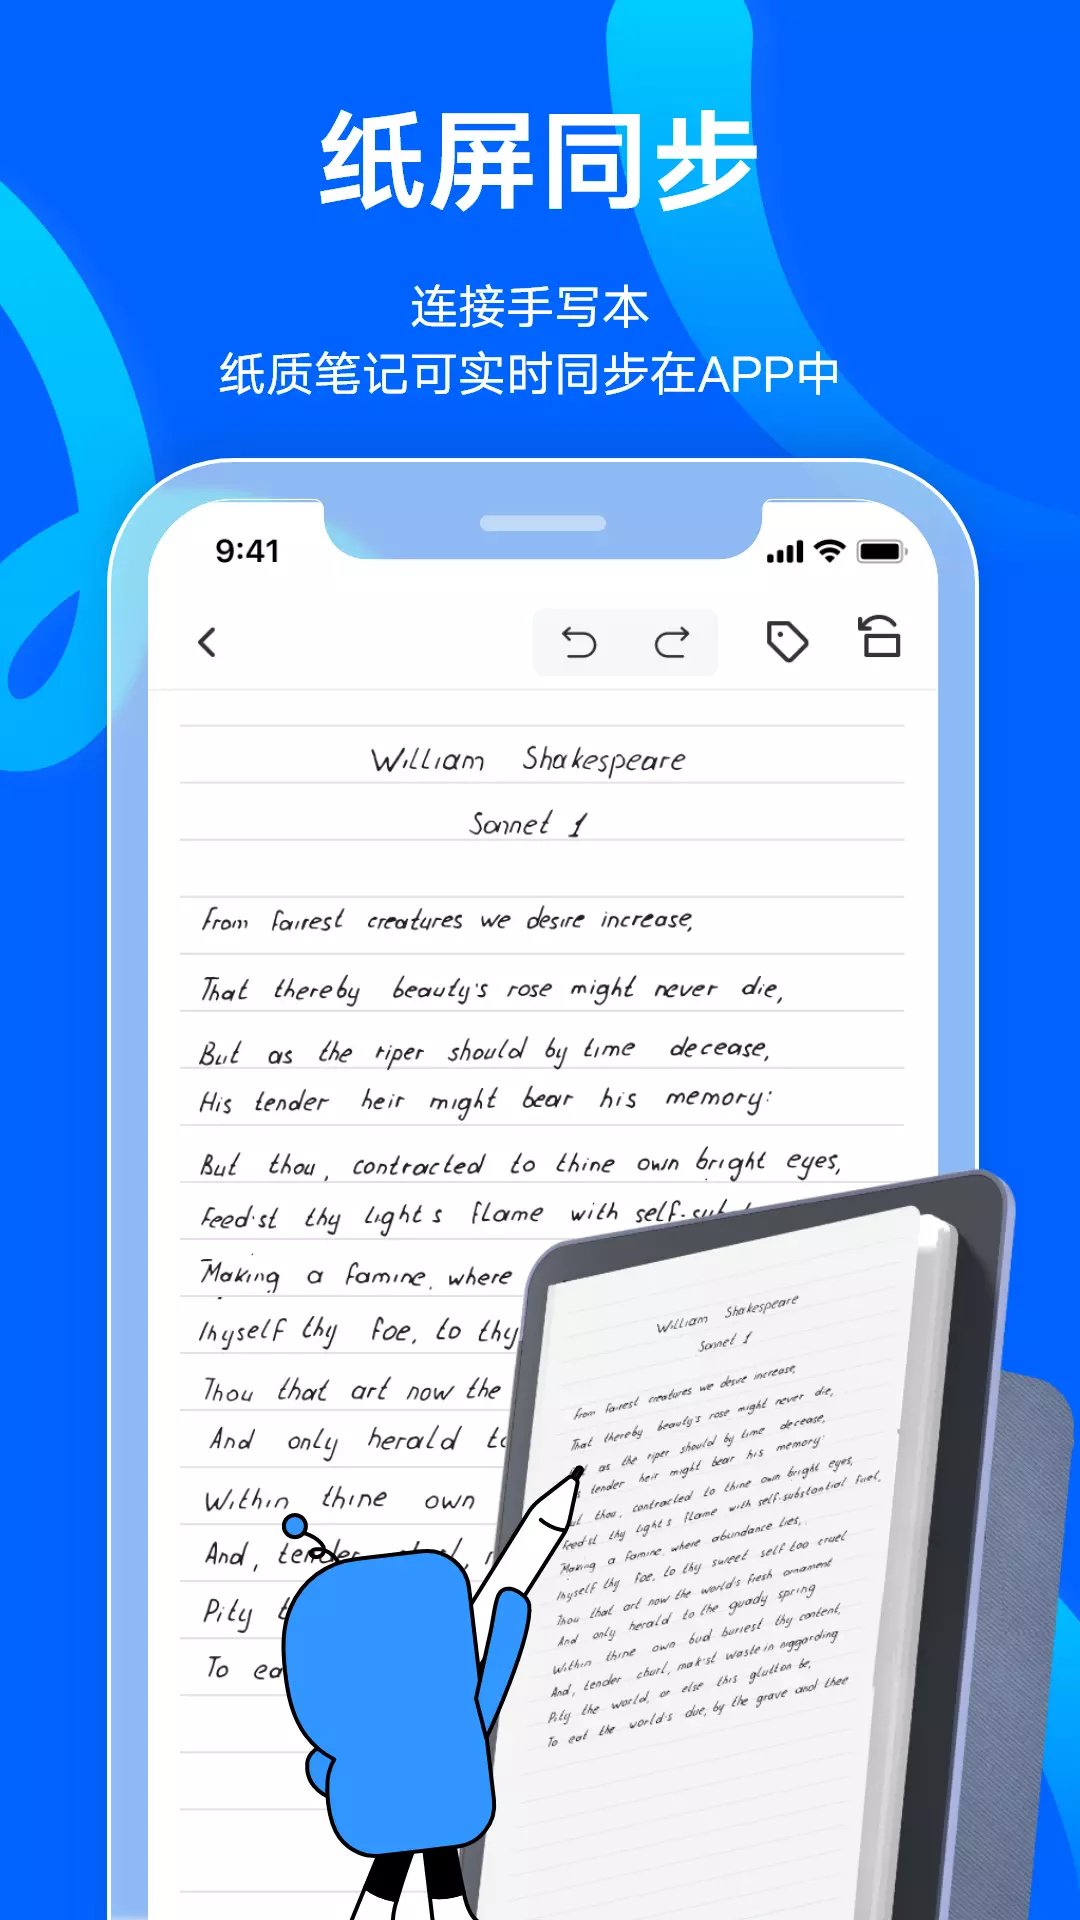 纸屏同步
连接手写本
纸质笔记可实时同步在APP中
9:41
William Shakespeare
Sonnet 1
From fairest creatures we desire increase,
That thereby beauty's rose might never die,
But as the riper should by time decease,
His tender heir might bear his memory:
But thou, contracted to thine own bright eyes,
Feed'st thy light's flame with self-sub
Making a famine, where
Thyself thy foe, to thy
Thou that art now the
And only herald to
Within thine own
And, tender churl,
Pity
To ea
William Shakespeare
Sonnet 1
From fairest creatures we desire increase,
That thereby beauty's rose might never die,
as the riper should by time decease,
tender heir might bear his memory:
But thou, contracted to thine own bright eyes,
Feed'st thy light's flame with self-substantial fuel,
Making a famine, where abundance lies,
Thyself thy foe, to thy sweet self too cruel
Thou that art now the world's fresh ornament
And only herald to the guady spring
Within thine own bud buriest thy content,
And, tender churl, mak'st waste in niggarding
Pity the world, or else this glutton be,
To eat the world's due, by the grave and thee